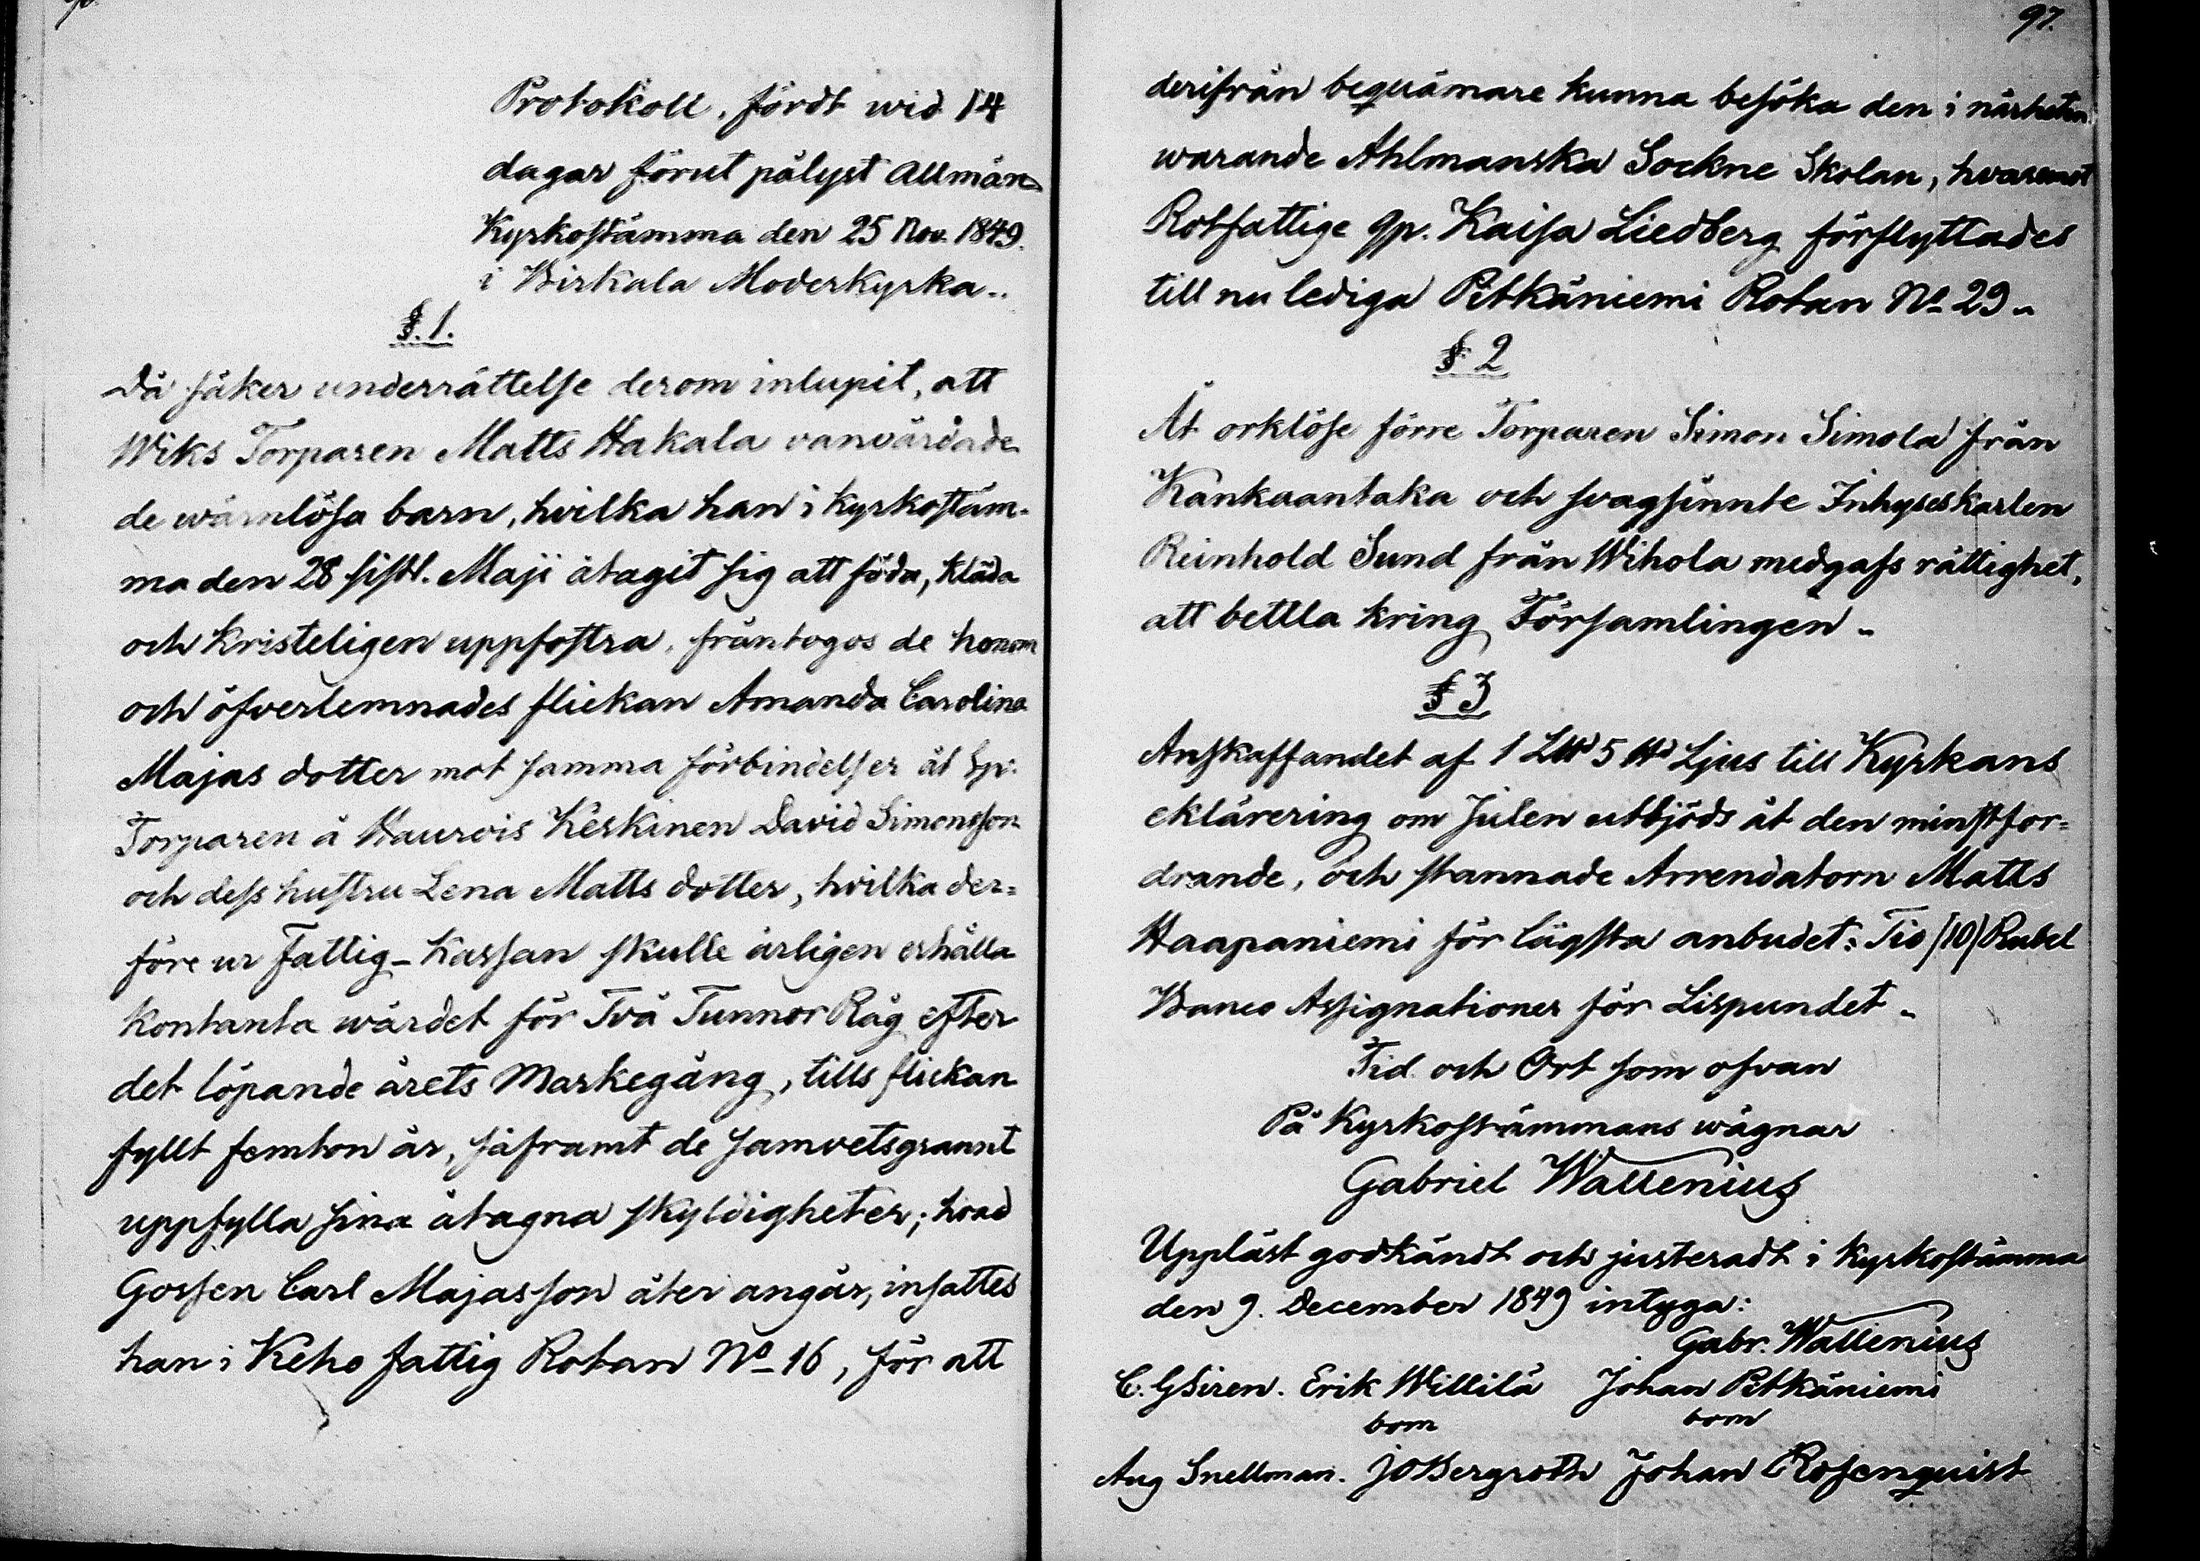 Protokoll, fördt wid 14
dagar förut pålyst Allmän
Kyrkostämma den 25 Nov. 1849.
i Birkala Moderkyrka..
§.1.
Då säker underrättelse derom inlupit, att
Wiks Torparen Matts Hakala vanvårdade
de wärnlösa barn, hvilka han i kyrkostäm-
ma den 28 sistl. Maji åtagit sig att föda, kläda
och kristeligen uppfostra, fråntogos de honom
och öfverlemnades flickan Amanda Carolina
Majas dotter mot samma förbindelser åt
Torparen å Haurois Keskinen David Simonsson
och dess hustru Lena Matts dotter, hvilka der=
före ur Fattig-Kassan skulle årligen erhålla
kontanta wärdet för Två Tunnor Råg efter
det löpande årets Markegång, tills flickan
fyllt femton år, såframt de samvetsgrannt
uppfylla sina åtagna skyldigheter; hvad
Gossen Carl Majasson åter angår, insattes
han i Keho fattig Rotan No 16, för att
97.
derifrån bequämare kunna besöka den i närheten
warande Ahlmanska Sockne Skolan, hvaremot
Rotfattige Qp. Kaisa Liedberg förflyttades
till nu lediga Pitkäniemi Rotan No 29.
§ 2
Åt orklöse förre Torparen Simon Simola från
Kankaantaka och svagsinnte Inhyseskarlen
Reinhold Sund från Wihola medgafs rättighet,
att bettla kring Församlingen.
§ 3
Anskaffandet af 1 L℔ 5 ℔ Ljus till Kyrkans
eklärering om Julen utbjöds åt den minstfor=
drande, och stannade Arrendatorn Matts
Haapaniemi för lägsta anbudet: Tio (10) Rubel
Banco Assignationer för Lispundet.
Tid och Ort som ofvan
På Kyrkostämmans wägnar
Gabriel Wallenius
Uppläst godkändt och justeradt i Kyrkostämma
den 9. December 1849 intyga:
Gabr. Wallenius
C. G Siren. Erik Willilä Johan Pitkäniemi
bom bom
Aug Snellman. J O Bergroth Johan Rosenquist